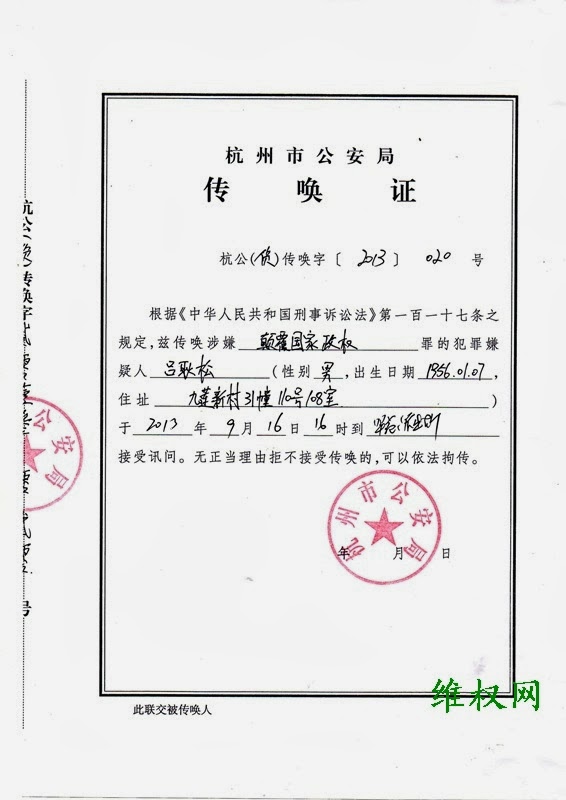 杭州市公安局
传唤证
杭公( )传唤字〔2013〕020号
根据《中华人民共和国刑事诉讼法》第一百一十七条之
规定，兹传唤涉嫌 颠覆国家政权 罪的犯罪嫌
疑人 吕耿松 (性别 男，出生日期 1956.01.07，
住址 九莲新村31幢110号108室)
于 2013 年 9 月 16 日 16 时到
接受讯问。无正当理由拒不接受传唤的，可以依法拘传。
杭州市公安局
年 月 日
此联交被传唤人
维权网
杭公( )传唤字
号
公安局